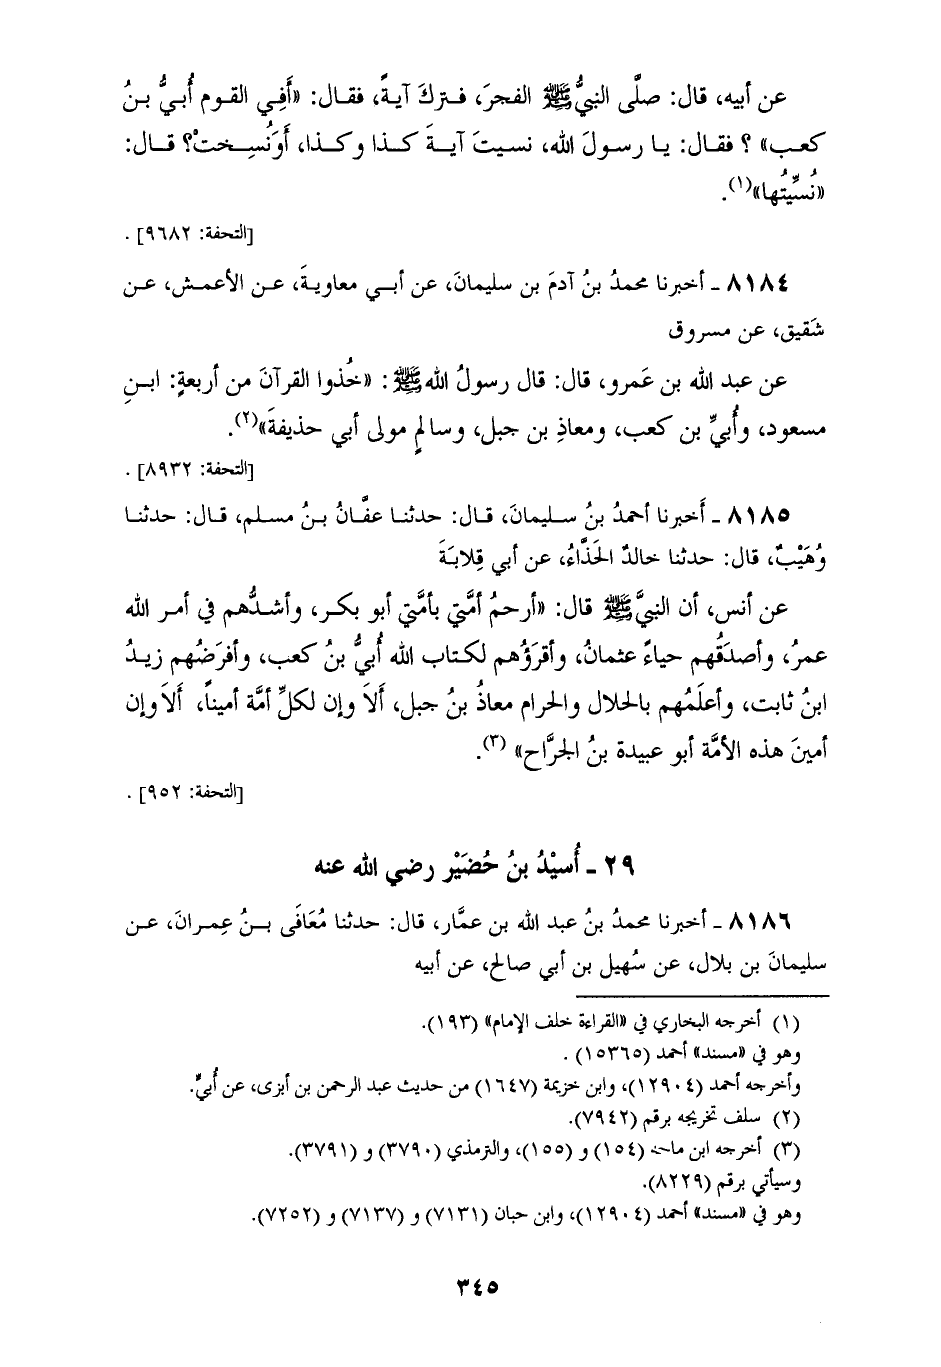 عن أبيه، قال: صلَّى النبيُّ ﷺ الفجرَ، فـتركَ آيـةً، فقـال: «أَفِـي القـوم أُبـيُّ بـنُ
كعـب» ؟ فقـال: يـا رسـولَ الله، نسـيتَ آيـةَ كـذا وكـذا، أوَنُسِـختْ؟ قـال:
«نُسِّيتُها»(١).
[التحفة: ٩٦٨٢] .
٨١٨٤ ـ أخبرنا محمدُ بنُ آدمَ بن سليمانَ، عن أبـي معاويـةَ، عـن الأعمـش، عـن
شَقيق، عن مسروق
عن عبد الله بن عَمرو، قال: قال رسولُ الله ﷺ : «خُذوا القرآنَ من أربعةٍ: ابـنِ
مسعود، وأُبيِّ بن كعب، ومعاذِ بن جبل، وسالمٍ مولى أبي حذيفةَ»(٢).
[التحفة: ٨٩٣٢] .
٨١٨٥ ـ أَخبرنا أحمدُ بنُ سـليمانَ، قـال: حدثنـا عفَّـانُ بـنُ مسـلم، قـال: حدثنـا
وُهَيْبٌ، قال: حدثنا خالدٌ الحَذَّاءُ، عن أبي قِلابَةَ
عن أنس، أن النبيَّ ﷺ قال: «أرحمُ أمَّتي بأمَّتي أبو بكـر، وأشـدُّهم في أمـر الله
عمرُ، وأصدَقُهم حياءً عثمانُ، وأقرَؤُهم لكتـاب الله أُبيُّ بنُ كعب، وأفرَضُهم زيـدُ
ابنُ ثابت، وأعلَمُهم بالحلال والحرام معاذُ بنُ جبل، أَلاَ وإن لكلِّ أمَّة أميناً، أَلاَ وإن
أمينَ هذه الأمَّة أبو عبيدة بنُ الجرَّاح» (٣).
[التحفة: ٩٥٢] .
٢٩ ـ أُسيْدُ بنُ حُضَيْر رضي الله عنه
٨١٨٦ ـ أخبرنا محمدُ بنُ عبد الله بن عمَّار، قال: حدثنا مُعَافَى بـنُ عِمـرانَ، عـن
سليمانَ بن بلال، عن سُهيل بن أبي صالح، عن أبيه
(١) أخرجه البخاري في «القراءة خلف الإمام» (١٩٣).
وهو في «مسند» أحمد (١٥٣٦٥) .
وأخرجه أحمد (١٢٩٠٤)، وابن خزيمة (١٦٤٧) من حديث عبد الرحمن بن أبزى، عن أُبيٍّ.
(٢) سلف تخريجه برقم (٧٩٤٢).
(٣) أخرجه ابن ماجه (١٥٤) و (١٥٥)، والترمذي (٣٧٩٠) و (٣٧٩١).
وسيأتي برقم (٨٢٢٩).
وهو في «مسند» أحمد (١٢٩٠٤)، وابن حبان (٧١٣١) و (٧١٣٧) و (٧٢٥٢).
٣٤٥